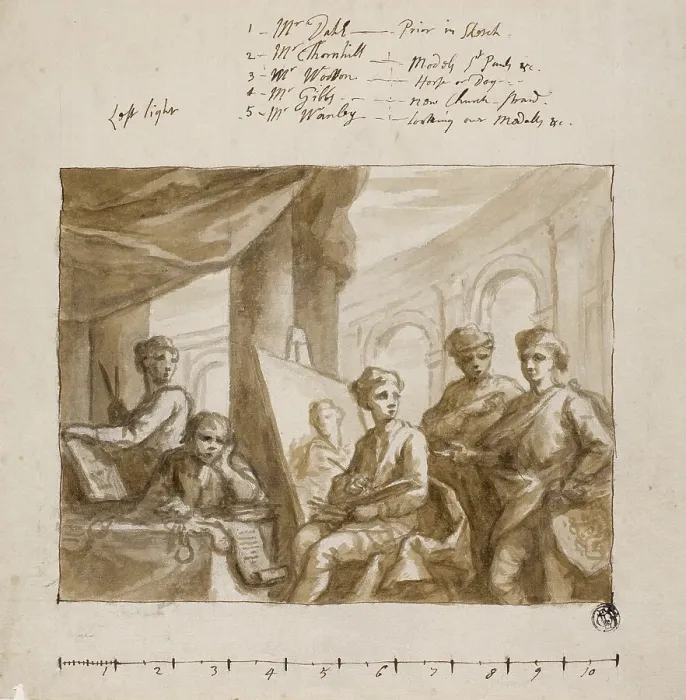 1 - Mr Dahl — Prior in Sketch.
2 - Mr Thornhill — Models St Pauls &c.
3 - Mr Wootton — Horse or Dog --
4 - Mr Gibbs — new Church - strand.
5 - Mr Wanley — looking over Medalls &c.
Left light
1 2 3 4 5 6 7 8 9 10